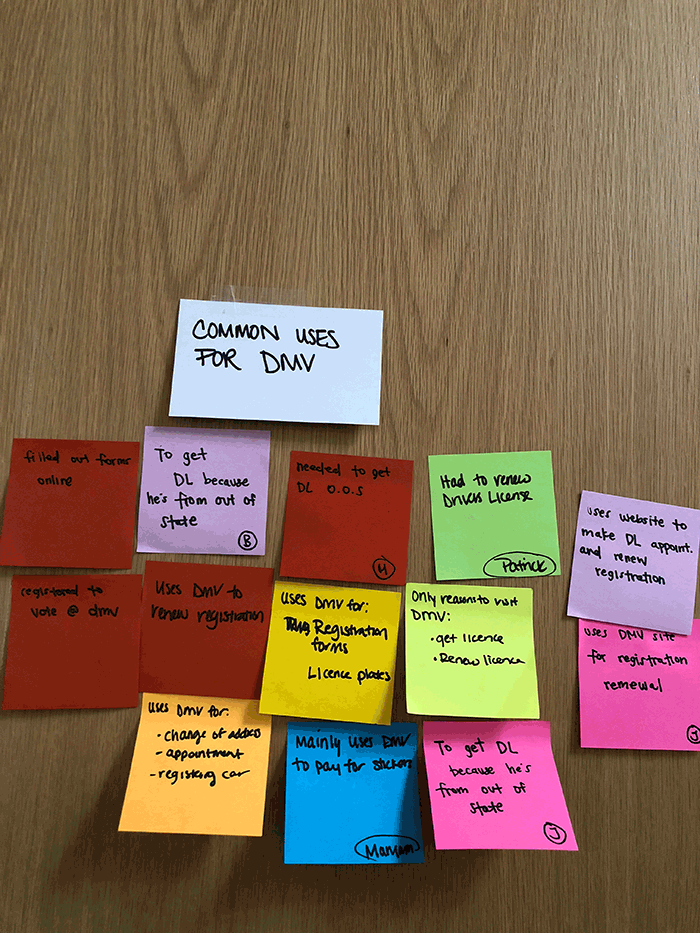 COMMON USES
FOR DMV
filled out forms
online
To get
DL because
he's from out of
state
B
needed to get
DL O.O.S
M
Had to renew
Drivers License
Patrick
uses website to
make DL appoint.
and renew
registration
registered to
vote @ dmv
Uses DMV to
renew registration
Uses DMV for:
Registration
forms
Licence plates
Only reasons to visit
DMV:
• get licence
• Renew licence
uses DMV site
for registration
remewal
J
uses DMV for:
• change of address
- appointment
- registering car
Mainly uses DMV
to pay for stickers
To get DL
because he's
from out of
state
J